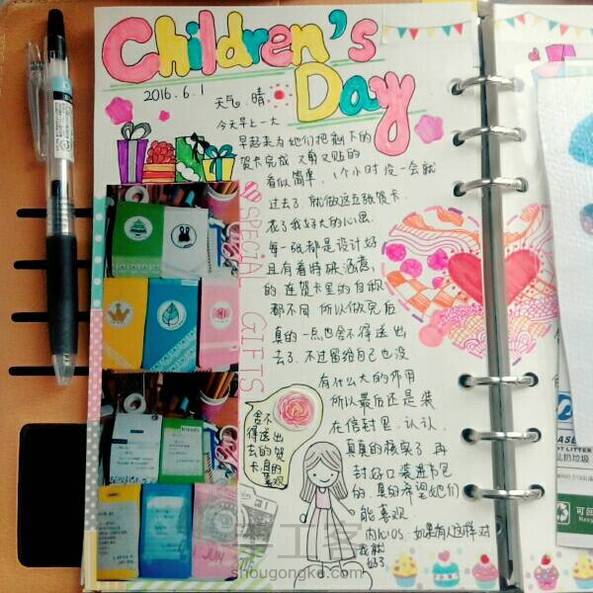 Children's
Day
2016.6.1
天气 晴
今天早上一大
早起来为她们把剩下的
贺卡完成 又剪又贴的
看似简单，1个小时没一会就
过去了，就做这五张贺卡
花了我好大的心思
每一张都是设计好
且有着特殊涵意，
的 连贺卡里的自取
都不同 所以做完后
真的一点也舍不得送出
去了，不过留给自己也没
有什么大的作用
所以最后还是装
在信封里，认认
真真的核实了 再
封好口装进书包
的，真的希望她们
能喜欢
内心OS，如果有人这样对
我就
好了
SPECIAL GIFTS
舍不
得送出
去的贺
卡，真的
喜欢
JUN
可回
shougongke.com